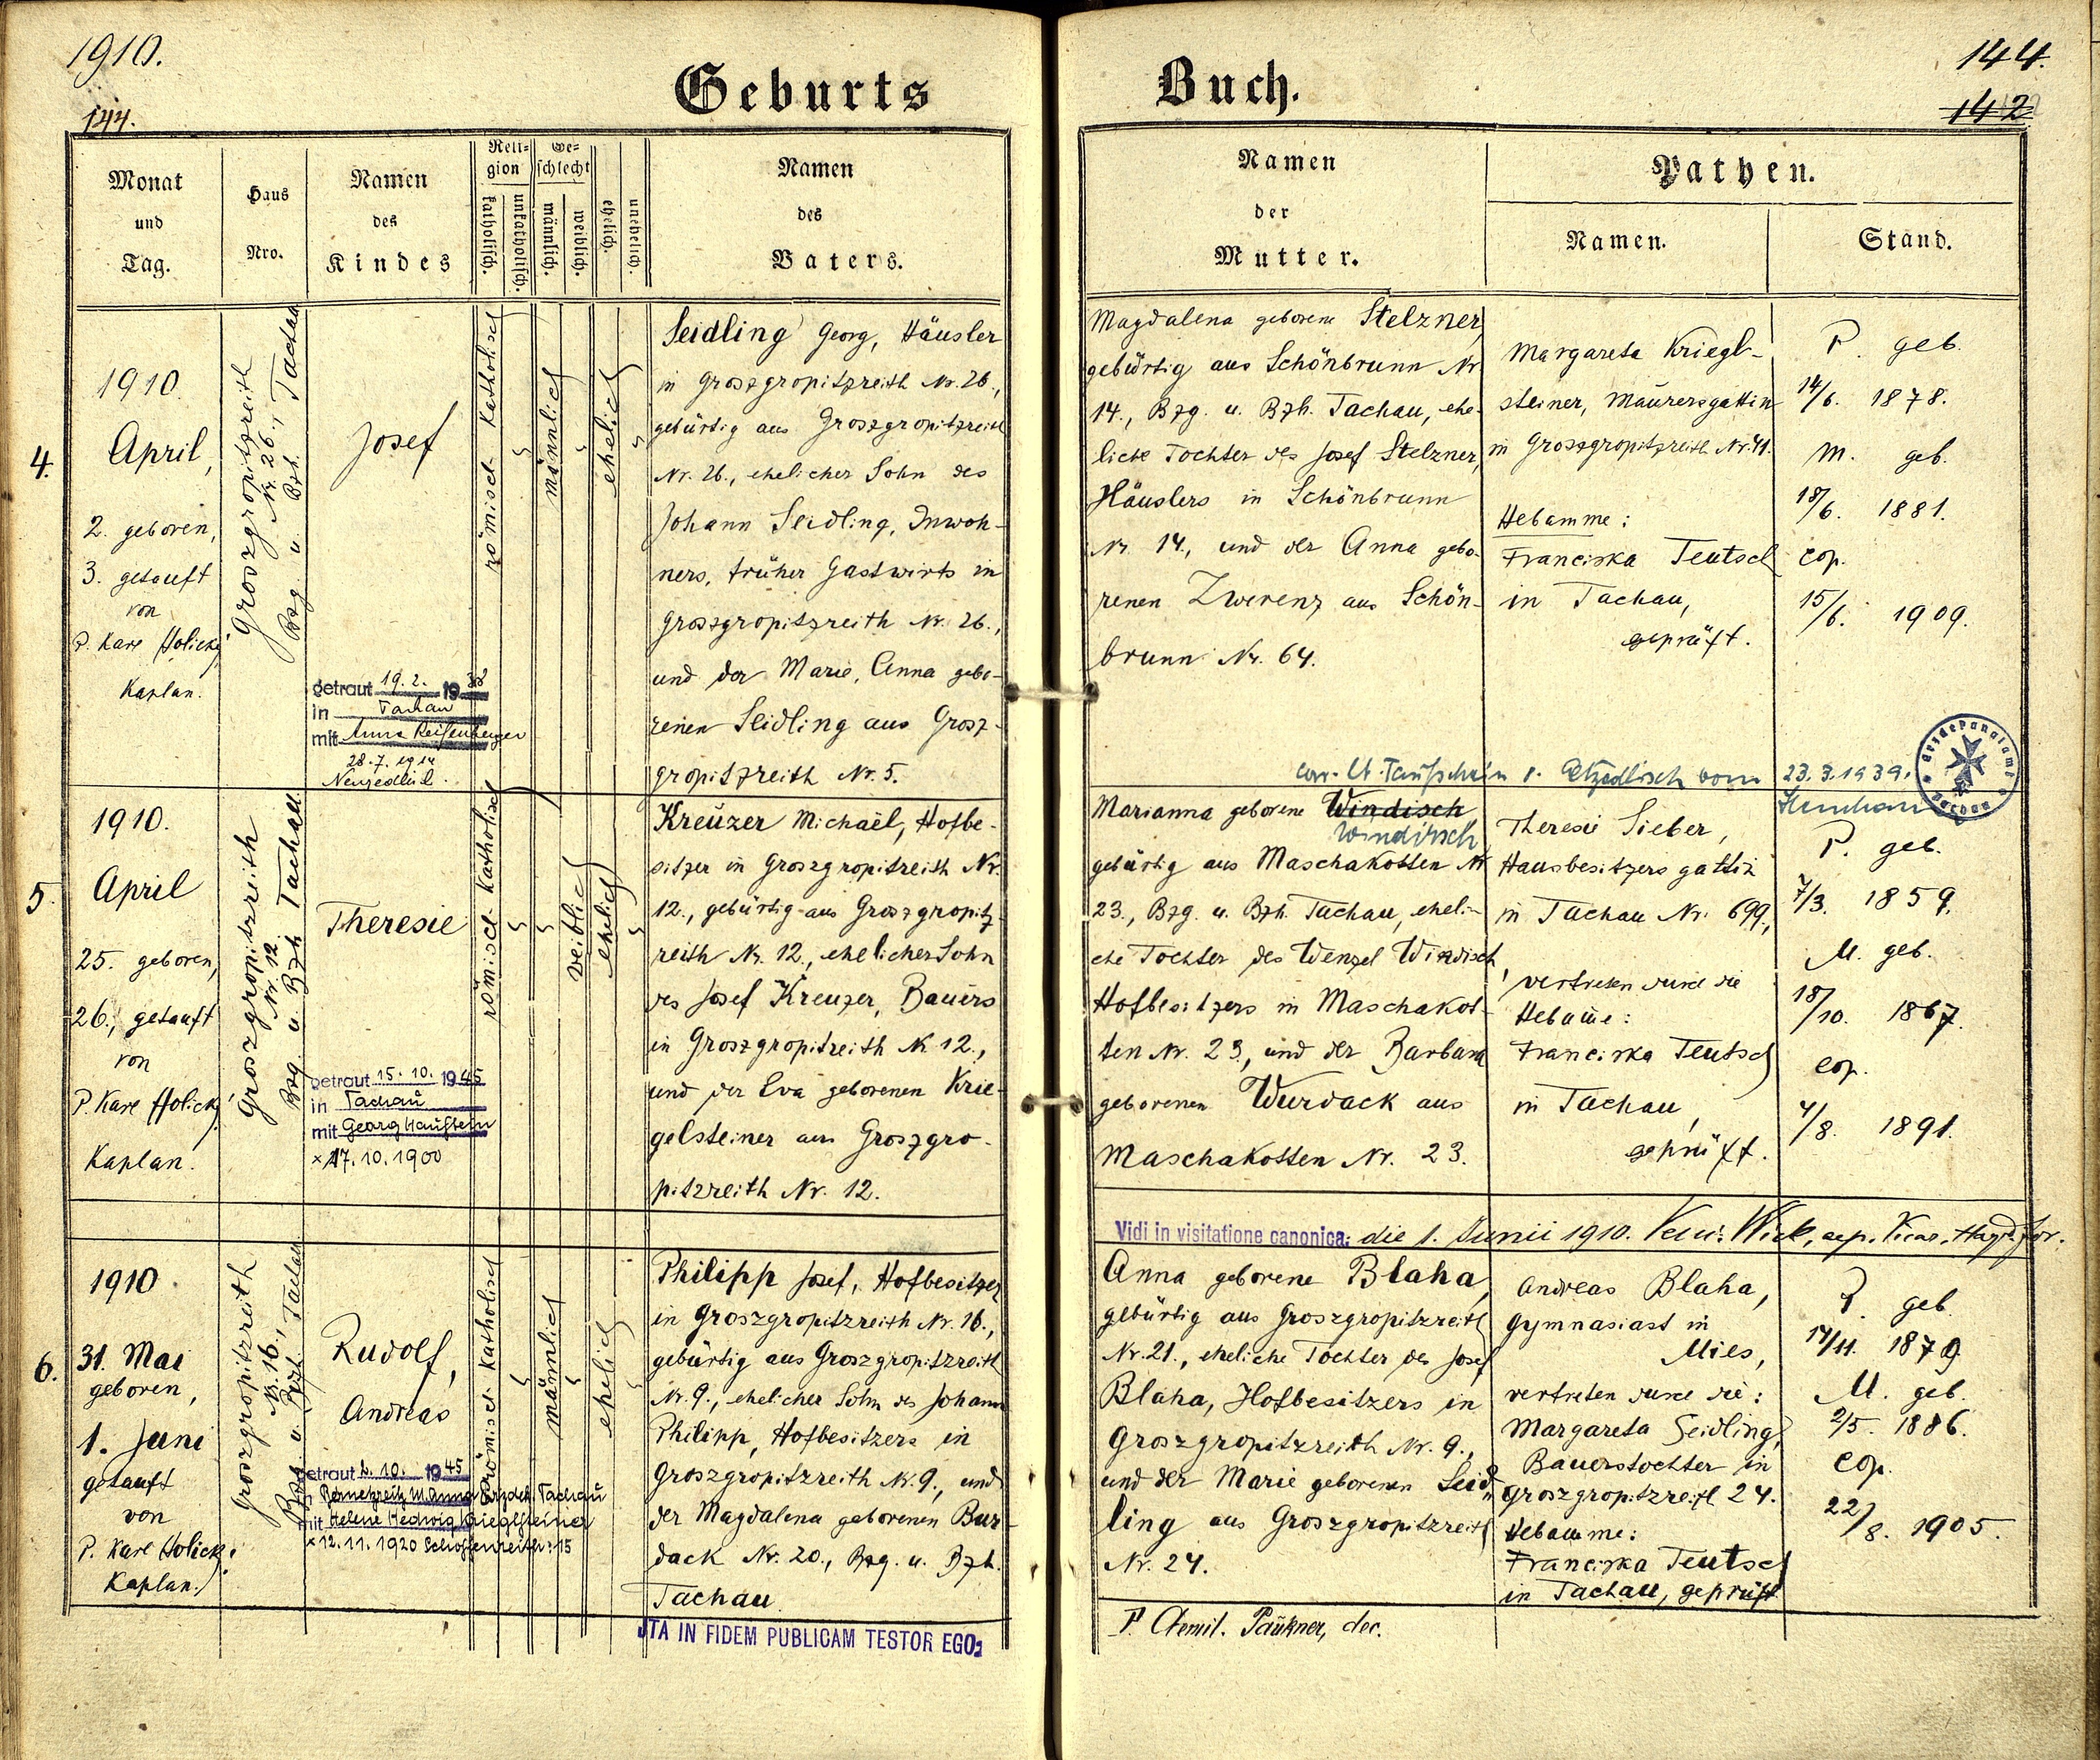 1910.
144.
Geburts
Monat
und
Tag.
Haus
Nro.
Namen
des
Kindes
Reli-
gion
katholisch.
unkatholisch.
Ge-
schlecht
männlich.
weiblich.
ehelich.
unehelich.
Namen
des
Vaters.
4.
1910.
April,
2. geboren,
3. getauft
von
P. Karl Holický
Kaplan.
Groszgropitzreith
Nr. 26.,
Bzg. u. Bzh. Tachau
Josef
getraut 19. 2. 1938
in Tachau
mit Anna Reifenberger
28.7.1914
römisch-katholisch
männlich
ehelich
Seidling Georg, Häusler
in Groszgropitzreith Nr. 26.,
gebürtig aus Groszgropitzreith
Nr. 26., ehelicher Sohn des
Johann Seidling, Inwoh-
ners, früher Gastwirts in
Groszgropitzreith Nr. 26.,
und der Marie, Anna gebo-
renen Seidling aus Grosz-
gropitzreith Nr. 5.
5.
1910.
April
25. geboren,
26., getauft
von
P. Karl Holický
Kaplan.
Groszgropitzreith
Nr. 12.
Bzg. u. Bzh Tachau
Theresie
getraut 15. 10. 1945
in Tachau
mit Georg Haustein
x 17.10.1900
römisch-katholisch
weiblich
ehelich
Kreuzer Michael, Hofbe-
sitzer in Groszgropitzreith Nr.
12., gebürtig aus Groszgropitz-
reith Nr. 12., ehelicher Sohn
des Josef Kreuzer, Bauers
in Groszgropitzreith Nr 12.,
und der Eva geborenen Krie-
gelsteiner aus Groszgro-
pitzreith Nr. 12.
6.
1910
31. Mai
geboren,
1. Juni
getauft
von
P. Karl Holický
Kaplan.
Groszgropitzreith
Nr. 16.,
Bzg. u. Bzh. Tachau
Rudolf,
Andreas
getraut 6. 10. 1945
mit Helene Hedwig Krieglsteiner
x 12.11.1920 Schossenreith: 15
römisch-katholisch
männlich
ehelich
Philipp Josef, Hofbesitzer
in Groszgropitzreith Nr. 16.,
gebürtig aus Groszgropitzreith
Nr. 9., ehelicher Sohn des Johann
Philipp, Hofbesitzers in
Groszgropitzreith Nr. 9., und
der Magdalena geborenen Bur-
dack Nr. 20., Bzg. u. Bzh.
Tachau
ITA IN FIDEM PUBLICAM TESTOR EGO:
144.
142
Buch.
Namen
der
Mutter.
Pathen.
Namen.
Stand.
Magdalena geborene Stelzner,
gebürtig aus Schönbrunn Nr
14., Bzg. u. Bzh. Tachau, ehe-
liche Tochter des Josef Stelzner,
Häuslers in Schönbrunn
Nr. 14., und der Anna gebo-
renen Zwerenz aus Schön-
brunn Nr. 64.
Margareta Kriegl-
steiner, Maurersgattin
in Groszgropitzreith Nr. 41.
Hebamme:
Franciska Teutsch
in Tachau,
geprüft.
P. geb.
14/6. 1878.
M. geb.
18/6. 1881.
cop.
15/6. 1909.
corr. lt. Taufschein vom 23.3.1939.
Erzdekanalamt
Tachau
Marianna geborene Windisch
Windirsch
gebürtig aus Maschakotten Nr
23., Bzg. u. Bzh. Tachau, eheli-
che Tochter des Wenzel Windisch,
Hofbesitzers in Maschakot-
ten Nr. 23., und der Barbara
geborenen Wurdack aus
Maschakotten Nr. 23.
Theresie Sieber,
Hausbesitzersgattin
in Tachau Nr. 699.,
vertreten durch die
Hebamme:
Franciska Teutsch
in Tachau,
geprüft.
P. geb.
7/3. 1859.
M. geb.
18/10. 1867.
cop.
4/8. 1891.
Vidi in visitatione canonica: die 1. Junii 1910.
Anna geborene Blaha,
gebürtig aus Groszgropitzreith
Nr. 21., eheliche Tochter des Josef
Blaha, Hofbesitzers in
Groszgropitzreith Nr. 9.,
und der Marie geborenen Seid-
ling aus Groszgropitzreith
Nr. 24.
Andreas Blaha,
Gymnasiast in
Mies,
vertreten durch die:
Margareta Seidling,
Bauerstochter in
Groszgropitzreith 24.
Hebamme:
Franciska Teutsch
in Tachau, geprüft
P. geb.
14/11. 1879
M. geb.
2/5. 1886.
cop.
22/8. 1905.
Paükner, dec.